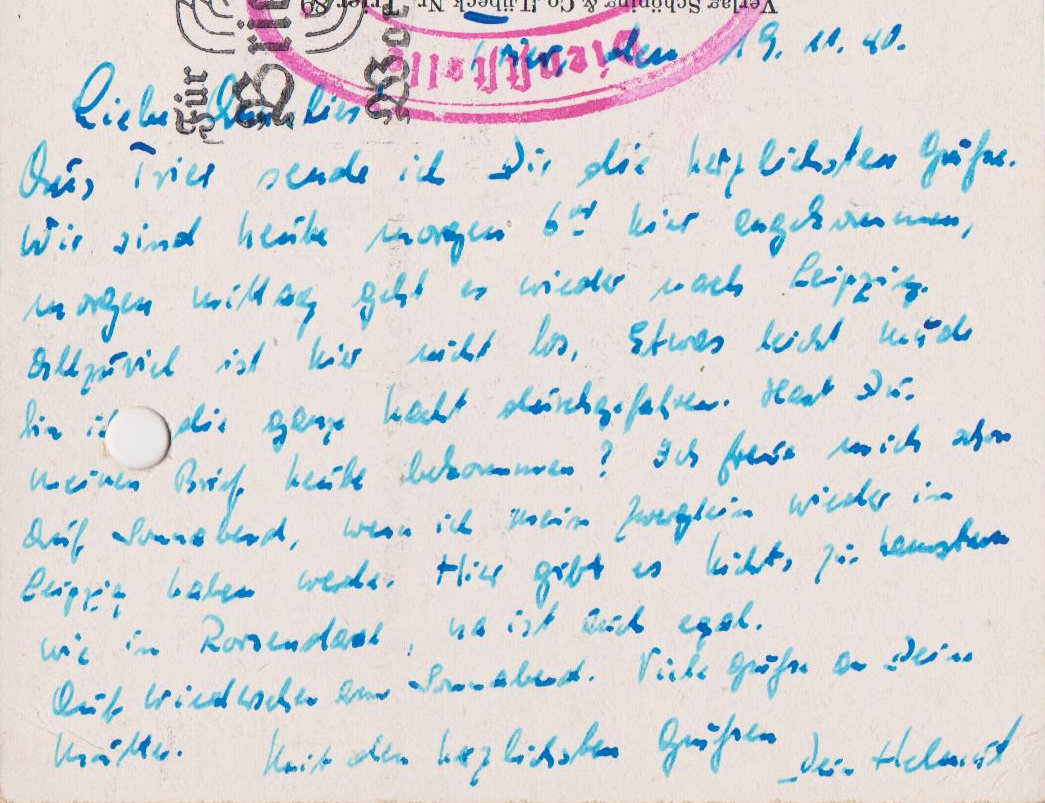 Verlag Schöning & Co., Lübeck Nr. Trier 89
Für
Trier, den 19. 11. 40.
Liebe Annelies!
Aus Trier sende ich Dir die herzlichsten Grüße.
Wir sind heute morgen 6 Uhr hier angekommen,
morgen mittag geht es wieder nach Leipzig.
ist hier nicht los, Etwas leicht müde
bin ich die ganze Nacht durchgefahren. Hast Du
meinen Brief heute bekommen? Ich freue mich schon
auf Sonnabend, wenn ich mein Zwerglein wieder in
Leipzig haben werde. Hier gibt es nichts, zu hamstern
wie in Roosendaal, na ist auch egal.
Auf Wiedersehen am Sonnabend. Viele Grüße an Deine
Mutter. Mit den herzlichsten Grüßen Dein Helmut